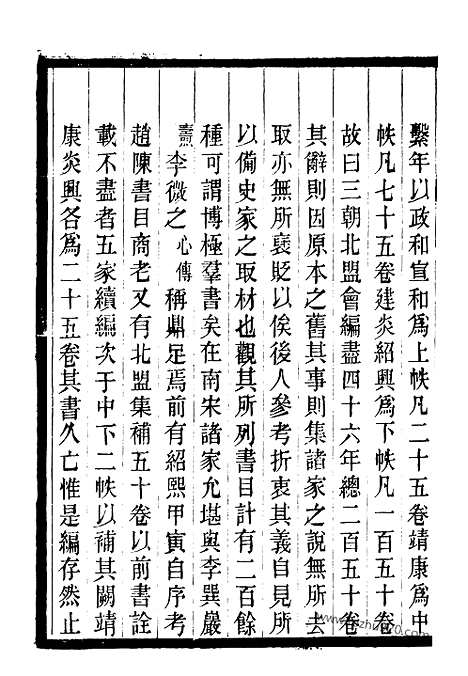 繫年以政和宣和爲上帙凡二十五卷靖康爲中
帙凡七十五卷建炎紹興爲下帙凡一百五十卷
故曰三朝北盟會編盡四十六年總二百五十卷
其辭則因原本之舊其事則集諸家之說無所去
取亦無所襃貶以俟後人參考折衷其義自見所
以備史家之取材也觀其所列書目計有二百餘
種可謂博極羣書矣在南宋諸家允堪與李巽巖
燾李微之心傳稱鼎足焉前有紹熙甲寅自序考
趙陳書目商老又有北盟集補五十卷以前書詮
載不盡者五家續編次于中下二帙以補其闕靖
康炎興各爲二十五卷其書久亡惟是編存然止